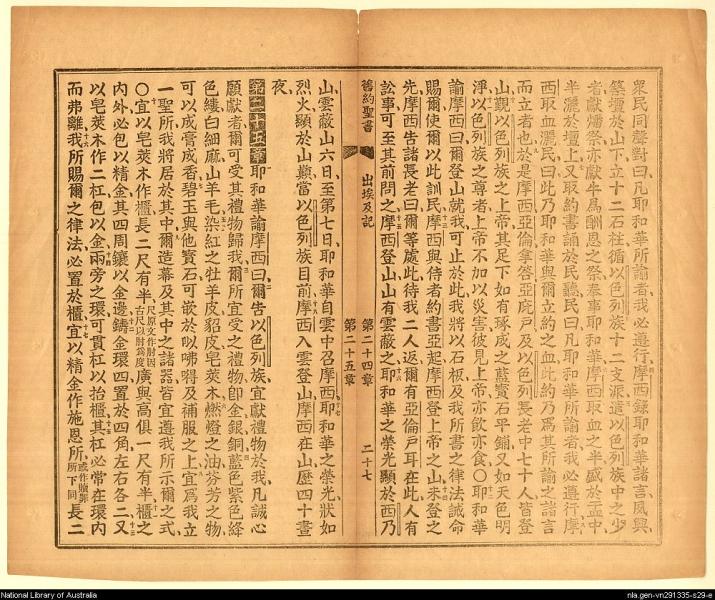 衆民同聲對曰凡耶和華所諭者我必遵行摩西錄耶和華諸言夙興
築壇於山下立十二石柱循以色列族十二支派遣以色列族中之少
者獻燔祭亦獻牛爲酬恩之祭奉事耶和華摩西取血之半盛於盂中
半灑於壇上又取約書誦於民聽民曰凡耶和華所諭者我必遵行摩
西取血灑民曰此乃耶和華與爾立約之血此約乃爲其所諭之諸言
而立者也於是摩西亞倫拿答亞庇戶及以色列長老中七十人皆登
山觀以色列族之上帝其足下如有琢成之藍寶石平鋪又如天色明
淨以色列族之尊者上帝不加以災害彼見上帝亦飲亦食〇耶和華
諭摩西曰爾登山就我可止於此我將以石板及我所書之律法誡命
賜爾使爾以此訓民摩西與侍者約書亞起摩西登上帝之山未登之
先摩西告諸長老曰爾等處此待我二人返爾有亞倫戶耳在此人有
訟事可至其前問之摩西登山山有雲蔽之耶和華之榮光顯於西乃
舊約聖書 出埃及記 第二十四章 二十七
第二十五章
山雲蔽山六日至第七日耶和華自雲中召摩西耶和華之榮光狀如
烈火顯於山巔當以色列族目前摩西入雲登山摩西在山歷四十晝
夜
第二十五章 耶和華諭摩西曰爾告以色列族宜獻禮物於我凡誠心
願獻者爾可受其禮物歸我爾所宜受之禮物卽金銀銅藍色紫色絳
色縷白細麻山羊毛染紅之牡羊皮貂皮皂莢木燃燈之油芬芳之物
可以成膏成香碧玉與他寶石可嵌於㕽咈得及補服之上宜爲我立
一聖所我將居於其中爾造幕及其中之諸器皆宜遵我所示爾之式
〇宜以皂莢木作櫃長二尺有半尺原文作肘因古尺以肘爲度廣與高俱一尺有半櫃之
內外必包以精金其四周鑲以金邊鑄金環四置於四角左右各二又
以皂莢木作二杠包以金兩旁之環可貫杠以抬櫃其杠必常在環內
而弗離我所賜爾之律法必置於櫃宜以精金作施恩所或作贖罪所下同長二
National Library of Australia
nla.gen-vn291335-s29-e